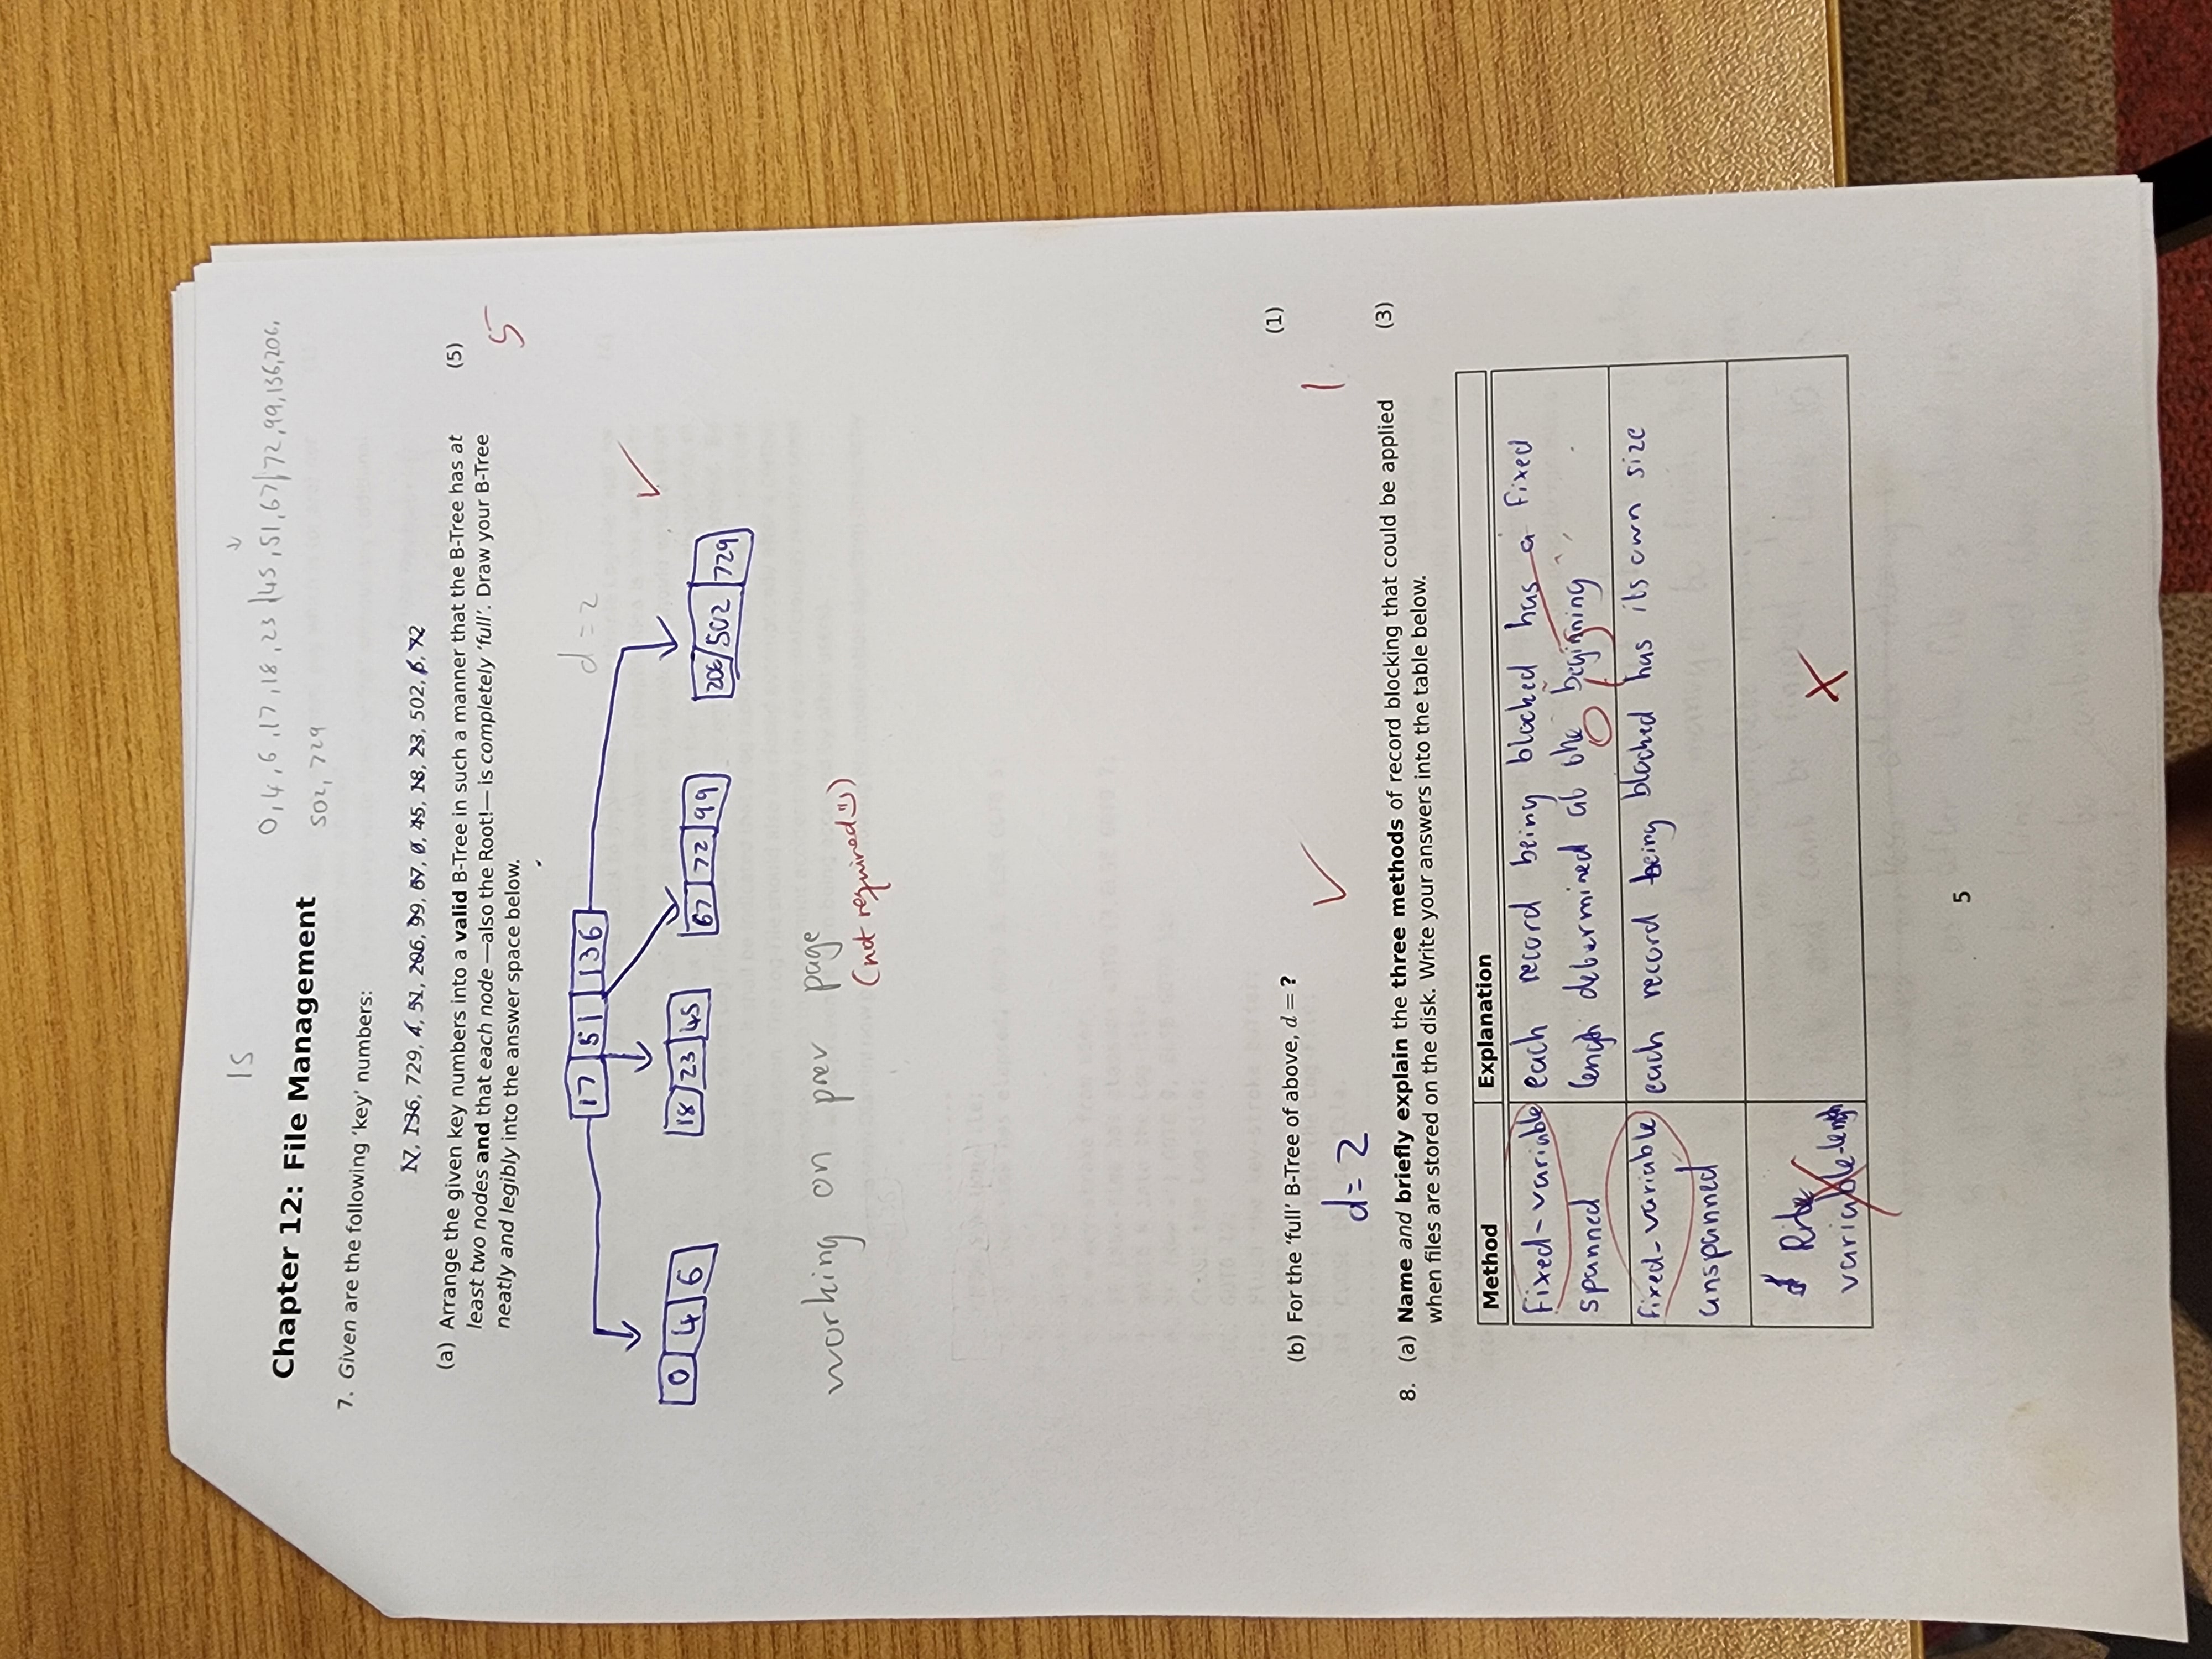 15
0, 4, 6, 17, 18, 23 | 45, 51, 67 | 72, 99, 136, 206,
502, 729
Chapter 12: File Management
7. Given are the following ‘key’ numbers:
17, 136, 729, 4, 51, 206, 99, 67, 0, 45, 18, 23, 502, 6, 72
(a) Arrange the given key numbers into a valid B-Tree in such a manner that the B-Tree has at (5)
least two nodes and that each node —also the Root!— is completely ‘full’. Draw your B-Tree
neatly and legibly into the answer space below.
5
17 51 136
d = 2
0 4 6
18 23 45
67 72 99
206 502 729
working on prev page
(not required)
(b) For the ‘full’ B-Tree of above, d = ? (1)
d = 2
1
8. (a) Name and briefly explain the three methods of record blocking that could be applied (3)
when files are stored on the disk. Write your answers into the table below.
Method Explanation
fixed-variable each record being blocked has a fixed
spanned length determined at the beginning
0
fixed-variable each record being blocked has its own size
unspanned
variable-length
5